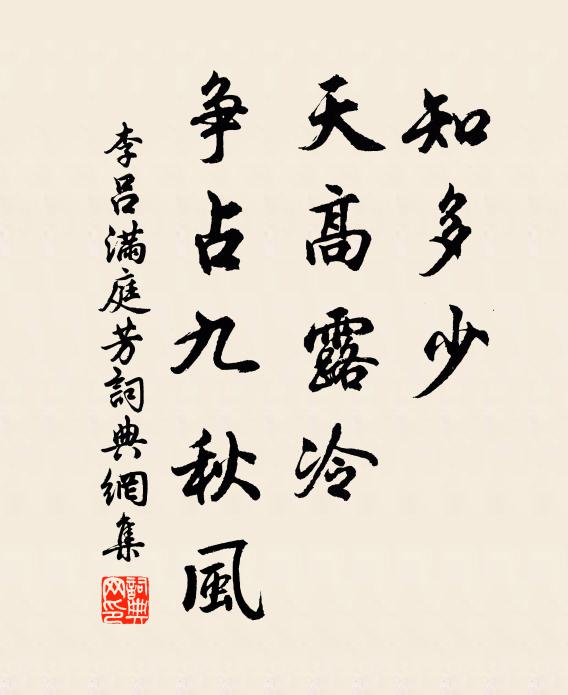 知多少
天高露冷
争占九秋風
李吕滿庭芳詞典網集
詞典網印